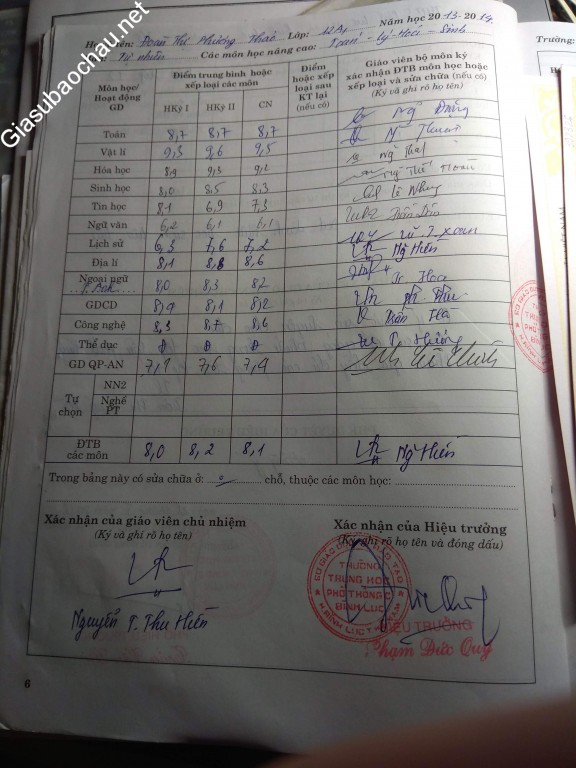 Giasubaochau.net
Họ tên: Đoàn Thị Phương Thảo Lớp: 12A1 Năm học 2013-2014
Tự nhiên Các môn học nâng cao: Toán - Lý - Hoá - Sinh
Trường:
Môn học/ Hoạt động GD
Điểm trung bình hoặc xếp loại các môn
HKỳ I HKỳ II CN
Điểm hoặc xếp loại sau KT lại (nếu có)
Giáo viên bộ môn ký xác nhận ĐTB môn học hoặc xếp loại và sửa chữa (nếu có)
(Ký và ghi rõ họ tên)
Toán 8,7 8,7 8,7
Vật lí 9,3 9,6 9,5
Hóa học 8,9 9,3 9,2
Sinh học 8,0 8,5 8,3
Tin học 8,1 6,9 7,3
Ngữ văn 6,2 6,1 6,1
Lịch sử 6,3 7,6 7,2
Địa lí 8,1 8,8 8,6 Ng Hiền
Ngoại ngữ 8,0 8,3 8,2
T. Anh
GDCD 8,1 8,2
Công nghệ 8,3 8,7 8,6
Thể dục Đ Đ Đ
GD QP-AN 7,6
Tự chọn
NN2
Nghề PT
ĐTB các môn 8,0 8,2 8,1 Ng Hiền
Trong bảng này có sửa chữa ở: 0 chỗ, thuộc các môn học:
Xác nhận của giáo viên chủ nhiệm
(Ký và ghi rõ họ tên)
Nguyễn T. Thu Hiền
Xác nhận của Hiệu trưởng
(Ký, ghi rõ họ tên và đóng dấu)
TRƯỜNG
TRUNG HỌC
PHỔ THÔNG
BÌNH LỤC
HIỆU TRƯỞNG
Phạm Đức Quý
6